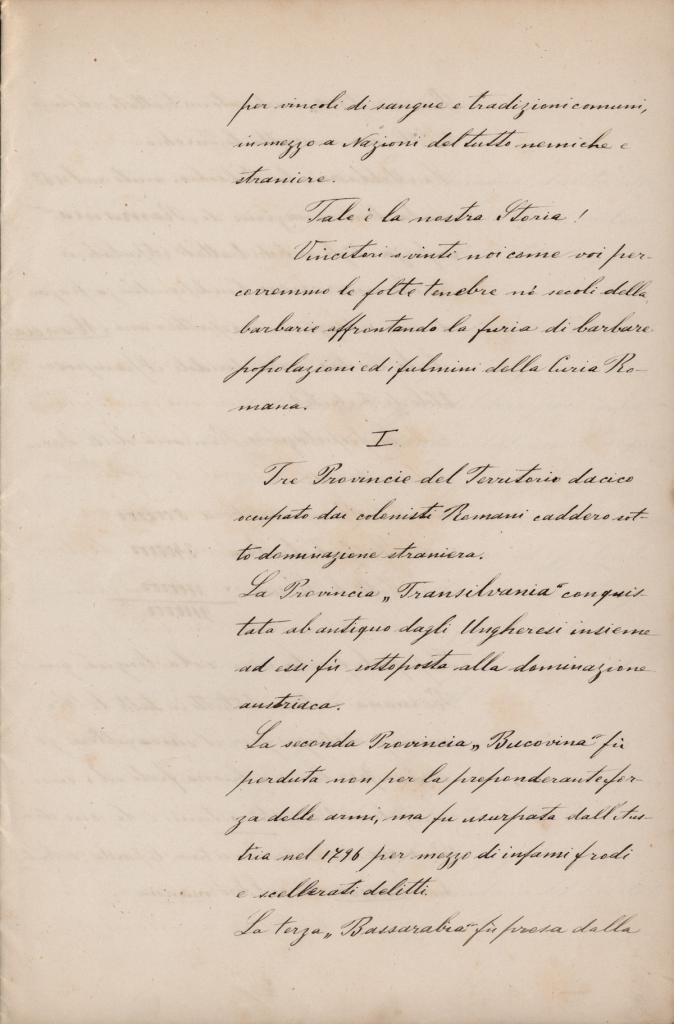 per vincoli di sangue e tradizioni comuni,
in mezzo a Nazioni del tutto nemiche e
straniere.
Tale è la nostra Storia!
Vincitori o vinti noi come voi per-
corremmo le folte tenebre nè secoli della
barbarie affrontando la furia di barbare
popolazioni ed i fulmini della Curia Ro-
mana.
I
Tre Provincie del Territorio dacico
occupato dai colonisti Romani caddero sot-
to dominazione straniera.
La Provincia „Transilvania" conquis-
tata ab antiquo dagli Ungheresi insieme
ad essi fù sottoposta alla dominazione
austriaca.
La seconda Provincia „Bucovina" fù
perduta non per la preponderante for-
za delle armi, ma fu usurpata dall'Aus-
tria nel 1796 per mezzo di infami frodi
e scellerati delitti.
La terza „Bassarabia" fù presa dalla